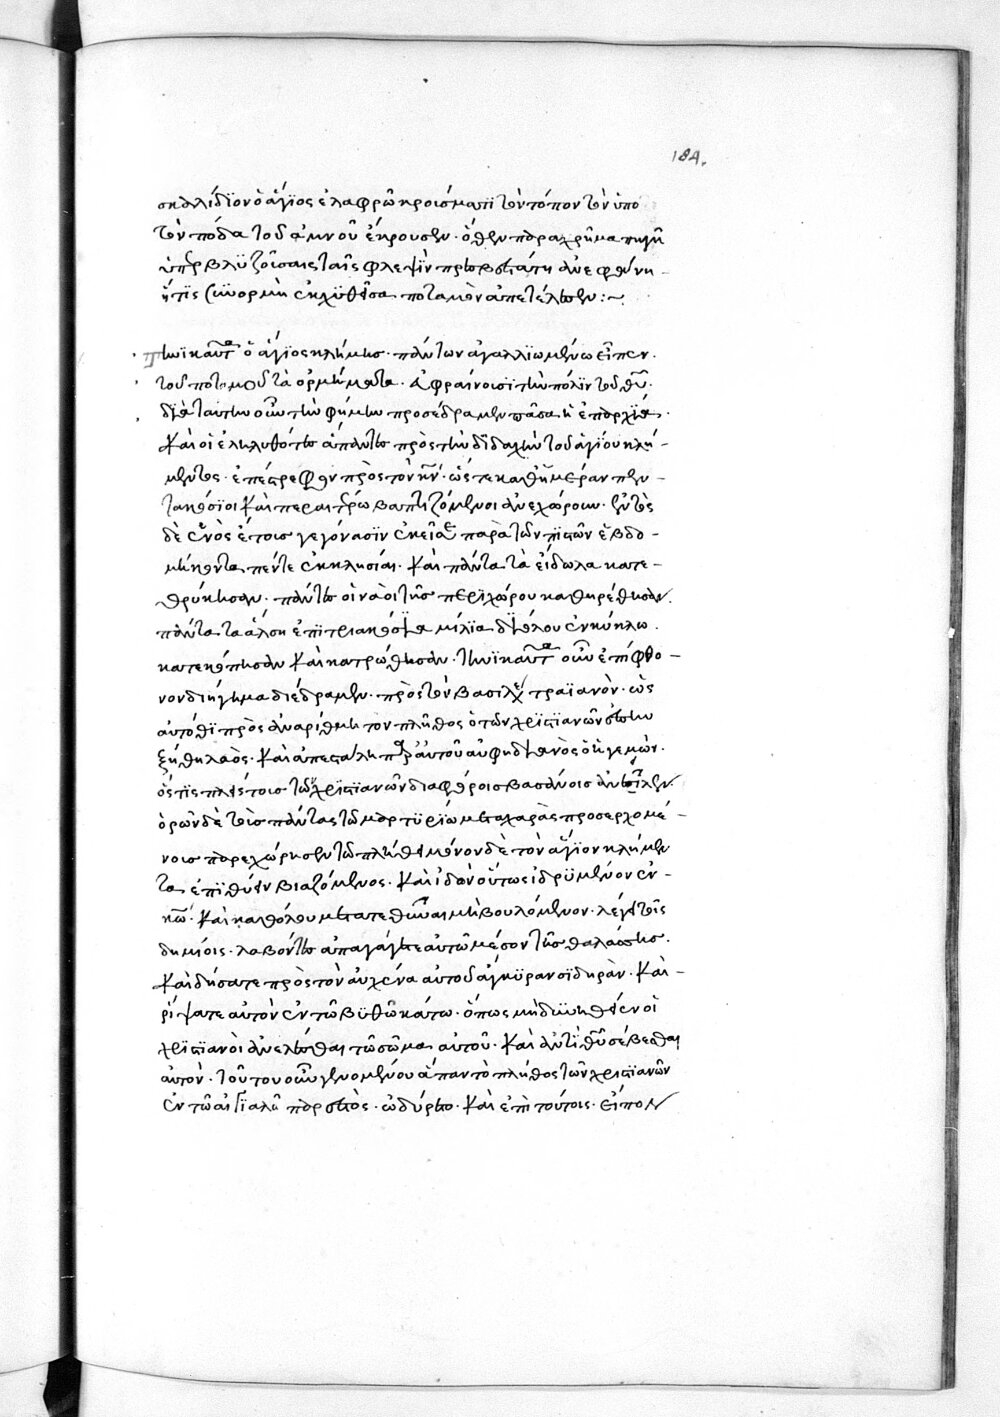 184.
σκαλίδιον ὁ ἅγϊος ἐλαφρῶ κροίσματϊ τὸν τόπον τὸν ὑπὸ
τὸν πόδα τοῦ ἀμνοῦ ἔκρουσεν· ὅθεν παραχρῆμα πηγὴ
ὑπερβλϋζούσαις ταῖς φλεψῒν πρὸς αὐτὰ ἀνεφάνη –
ἥτϊς σϋνορμὴ ἐκχϋθεῖσα ποταμὸν ἀπετέλεσεν :~
τηνϊκαῦτα ὁ ἅγϊος κλήμης· πάντων ἀγαλλϊωμένω εἶπεν·
τοῦ ποταμοῦ τὰ ὁρμήματα· εὐφραίνουσϊ τὴν πόλϊν τοῦ θῦ·
δϊὰ ταύτην οὖν τὴν φήμην προσέδραμεν πᾶσα ἡ ἐπαρχϊα·
καὶ οἱ ἐληλυθότες ἅπαντες πρὸς τὴν δϊδαχὴν τοῦ ἁγίου κλή –
μεντος· ἐπέστρεφον πρὸς τὸν κν· ὥστε καθ ἡμέραν πεν –
τακόσϊοι καὶ περαιτέρω βαπτϊζόμενοι ἀνεχώρουν· ἐντὸς
δὲ ἑνὸς ἔτους γεγόνασϊν ἐκεῖσε παρὰ τῶν πϊστῶν ἑβδο –
μήκοντα πέντε ἐκκλησίαι· καὶ πάντα τὰ εἴδωλα κατε –
θρύβησαν· πάντες οἱ ναοὶ τῆς περϊχώρου καθηρέθησαν·
πάντα τὰ ἄλση ἐπϊ τριακόσϊα μίλϊα δϊόλου ἐν κύκλω·
κατεκόπησαν καὶ κατρώθησαν· τηνϊκαῦτα οὖν ἐπίφθο –
νον διήγημα διέδραμεν· πρὸς τὸν βασιλέα τραϊανόν· ὡς
αὐτόθϊ πρὸς ἀναρίθμητον πλῆθος ὁ τῶν χρϊστϊανῶν
ξήθη λαός· καὶ ἀπεστάλη παρ αὐτοῦ αὐφηδϊανὸς ὁ ἡγεμών·
ὅστϊς πλείστους τῶν χρϊστϊανῶν διαφόροις βασάνοις ἀνεῖλεν·
ὁρῶν δὲ τοὺς πάντας τῶ μαρτϋρίω μετα χαρᾶς προσερχομέ –
νους παρεχώρησεν τῶ πλήθει μόνον δὲ τὸν ἅγϊον κλήμεν
τα ἐπϊθύειν βιαζόμενος· καὶ ἰδὼν οὕτως ἱδρϋμένον ἐν –
κω· καὶ καθόλου μετατεθῆναι μὴ βουλόμενον· λέγει τοῖς
δημίοις· λαβόντες ἀπαγάγετε αὐτὸν μέσον τῆς θαλάσσης·
καὶ δήσατε πρὸς τὸν αὐχένα αὐτοῦ ἄγκϋραν σϊδηρὰν· καὶ –
ῥίψατε αὐτὸν ἐν τῶ βϋθῶ κάτω· ὅπως μὴ δϋνηθεῖεν οἱ
χρϊστϊανοὶ ἀνελέσθαι τὸ σῶμα αὐτοῦ· καὶ ἀντὶ θῦ σέβεσθαι
αὐτόν· τούτου οὖν γενομένου ἅπαν τὸ πλῆθος τῶν χρϊστϊανῶν
ἐν τῶ αἰγϊαλῶ παρεστὸς· ὠδύρετο· καὶ ἐπὶ τούτοις· εἶπον